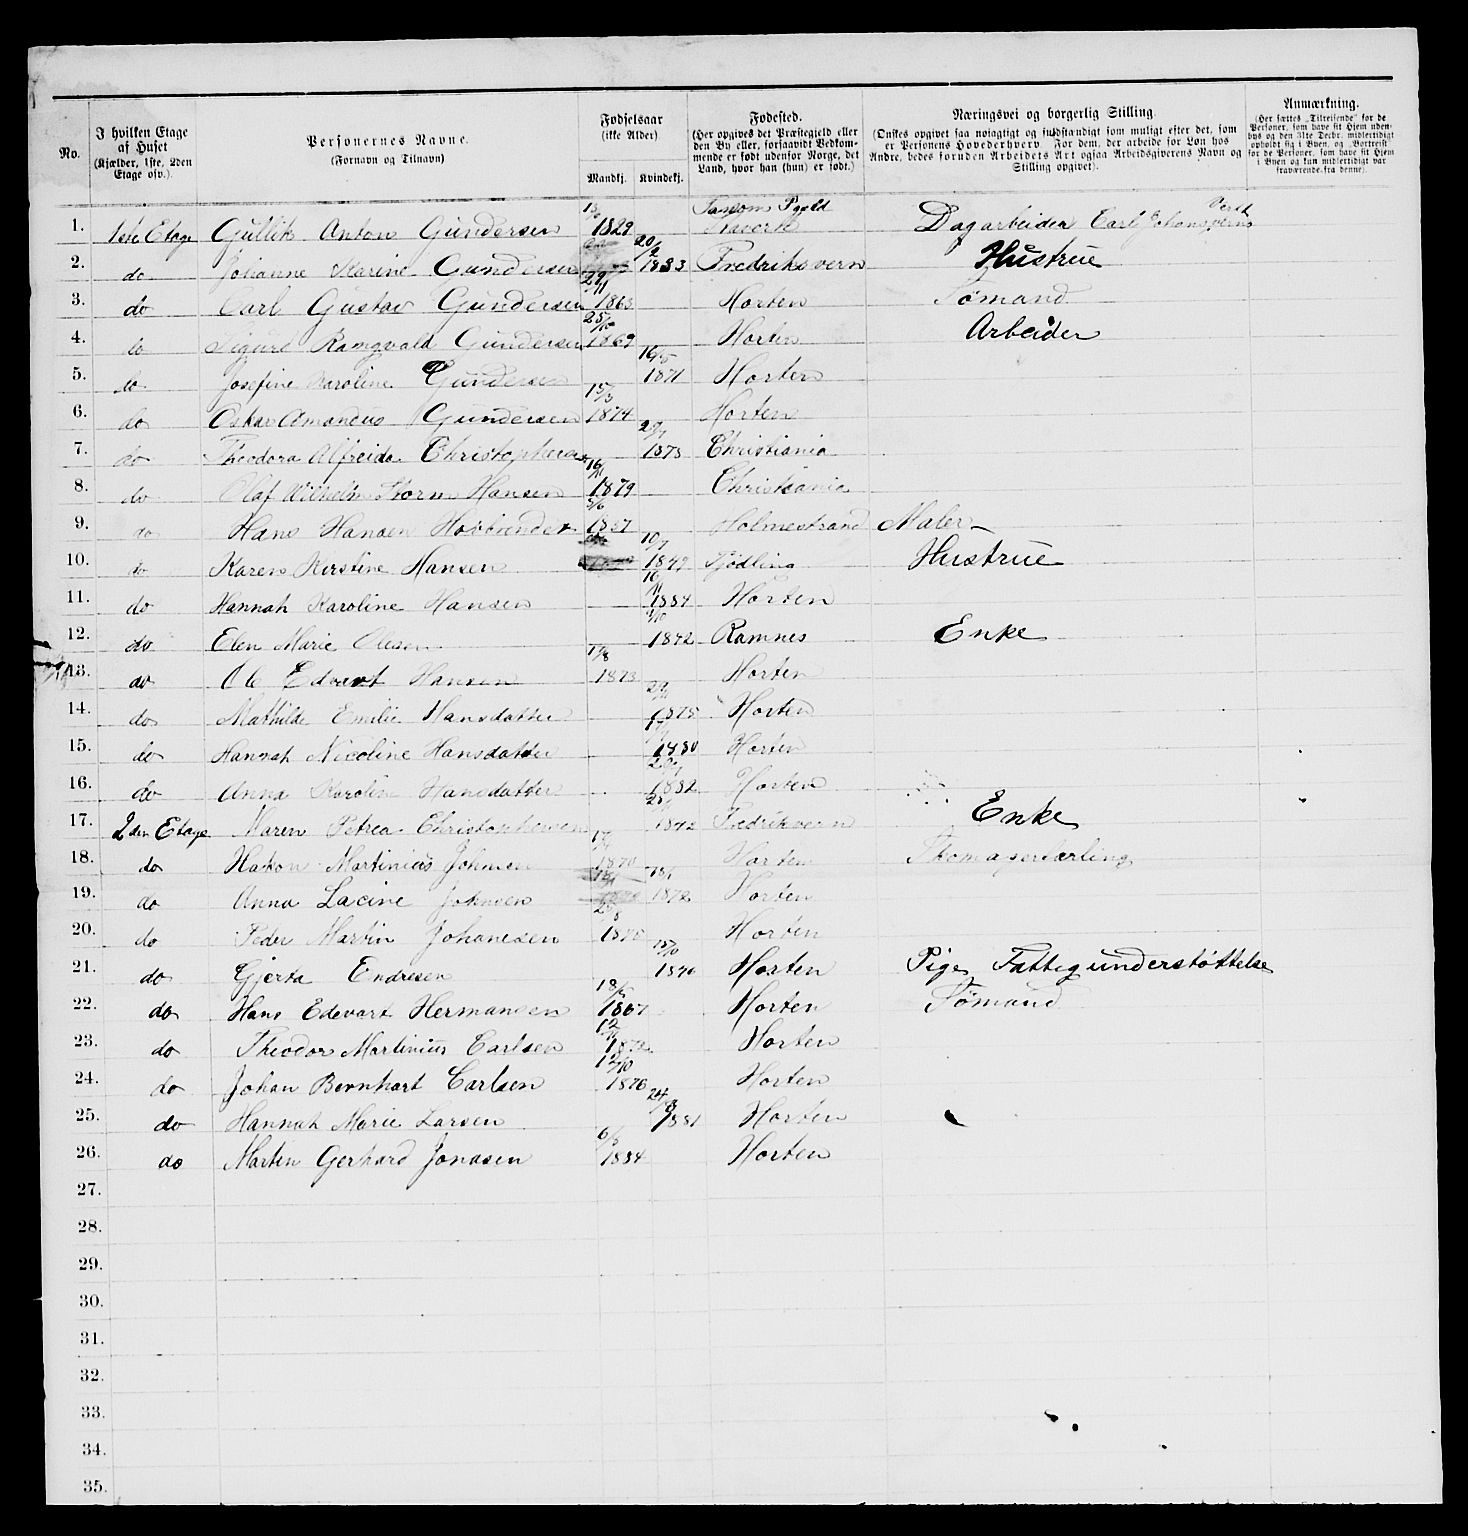 No. | I hvilken Etage af Huset (Kjælder, 1ste, 2den Etage osv.). | Personernes Navne. (Fornavn og Tilnavn) | Fødselsaar (ikke Alder) Mandkj. Kvindekj. | Fødested. (Her opgives det Præstegjeld eller den By eller, forsaavidt Vedkommende er født udenfor Norge, det Land, hvor han (hun) er født.) | Næringsvei og borgerlig Stilling. (Ønskes opgivet saa nøiagtigt og fuldstændigt som muligt efter det, som er Personens Hovederhverv. For dem, der arbeide for Løn hos Andre, bedes foruden Arbeidets Art ogsaa Arbeidsgiverens Navn og Stilling opgivet). | Anmærkning. (Her sættes „Tilreisende“ for de Personer, som have sit Hjem udenbys og den 31te Decbr. midlertidigt opholdt sig i Byen, og „Bortreist“ for de Personer, som have sit Hjem i Byen og kun midlertidigt var fraværende fra denne).
1. 1ste Etage Gullik Anton Gundersen 1829 Dagarbeider Carl Johansværns
2. do Johanne Karine Gundersen 20/2 1833 Fredriksvern Hustrue
3. do Carl Gustav Gundersen 29/11 1863 Horten Sømand
4. do Sigurd Rangvald Gundersen 25/10 1869 Horten Arbeider
5. do Josefine Karoline Gundersen 16/5 1871 Horten
6. do Oskar Amandus Gundersen 15/3 1874 Horten
7. do Theodora Alfreida 1873 Christiania
8. do Olaf Wilhelm Storm Hansen 16/11 1879 Christiania
9. do Hans Hansen 5/6 1857 Holmestrand Maler
10. do Karen Kirstine Hansen 10/7 1849 Tjødling Hustrue
11. do Hannah Karoline Hansen 1884 Horten
12. do Elen Marie Olesen 1842 Ramnes Enke
13. do Ole Edvart Hansen 1873 Horten
14. do Mathilde Emilie Hansdatter 1875 Horten
15. do Hannah Nicoline Hansdatter 1880 Horten
16. do Anna Karolin Hansdatter 1882 Horten
17. 2den Etage Maren Petrea Christophersen 1842 Fredriksvern Enke
18. do Hakon Martinius Johnsen 1870 Horten Skomagerlærling
19. do Anna Lacine Johnsen 1872 Horten
20. do Peder Martin Johanesen 1875 Horten
21. do Gjerta Endresen 15/10 Horten Pige Fattigunderstøttelse
22. do Hans Edevart Hermansen 1867 Horten Sømand
23. do Theodor Martinius Carlsen 1872 Horten
24. do Johan Bernhart Carlsen 12/10 1876 Horten
25. do Hannah Marie Larsen 24/8 1881 Horten
26. do Martin Gerhard Jonasen 1884 Horten
27.
28.
29.
30.
31.
32.
33.
34.
35.